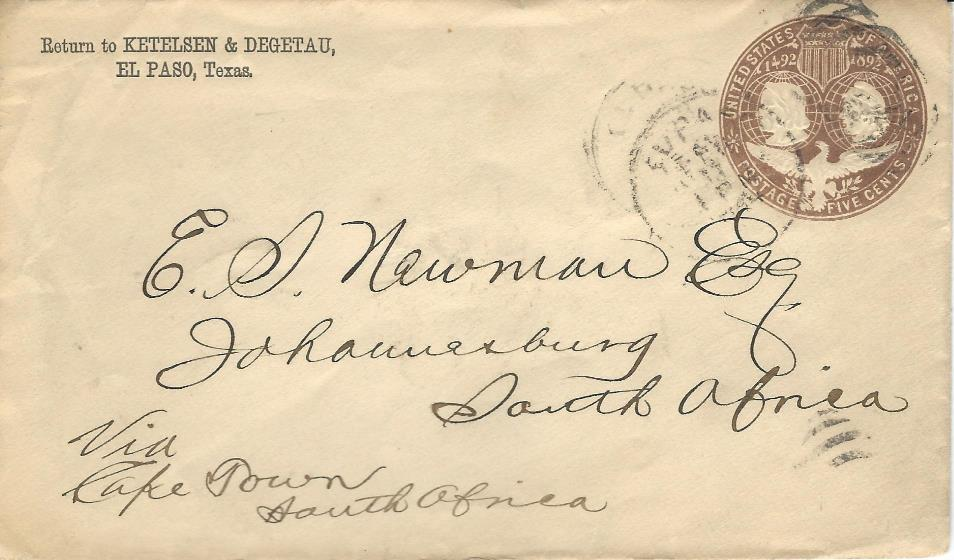 Return to KETELSEN & DEGETAU,
EL PASO, Texas.
UNITED STATES OF AMERICA
1492 1892
POSTAGE FIVE CENTS
E. S. Newman Esq
Johannesburg
South Africa
Via
Cape Town
South Africa